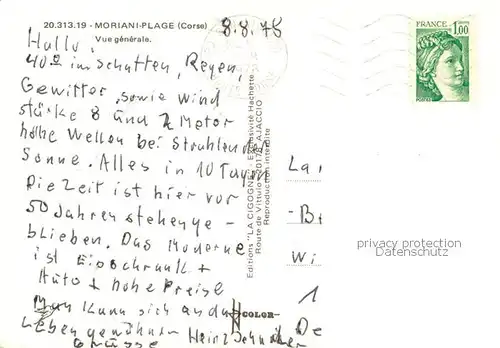 20.313.19 - MORIANI-PLAGE (Corse)
Vue générale.
8.8.78
Hallo!
40º im Schatten, Regen,
Gewitter, sowie Wind
stärke 8 und 2 Meter
hohe Wellen bei Strahlender
Sonne. Alles in 10 Tagen
Die Zeit ist hier vor
50 Jahren stehenge-
blieben. Das Moderne
ist Eisschrank +
Auto + hohe Preise
Man kann sich an das
Leben gewöhnen
Grüsse Heinz
Editions "LA CIGOGNE" - Exclusivité Hachette
Route de Vittulo - 20178 AJACCIO
Reproduction interdite
COLOR
FRANCE
1,00
POSTES
La
-B
Wi
1
De
privacy protection
Datenschutz